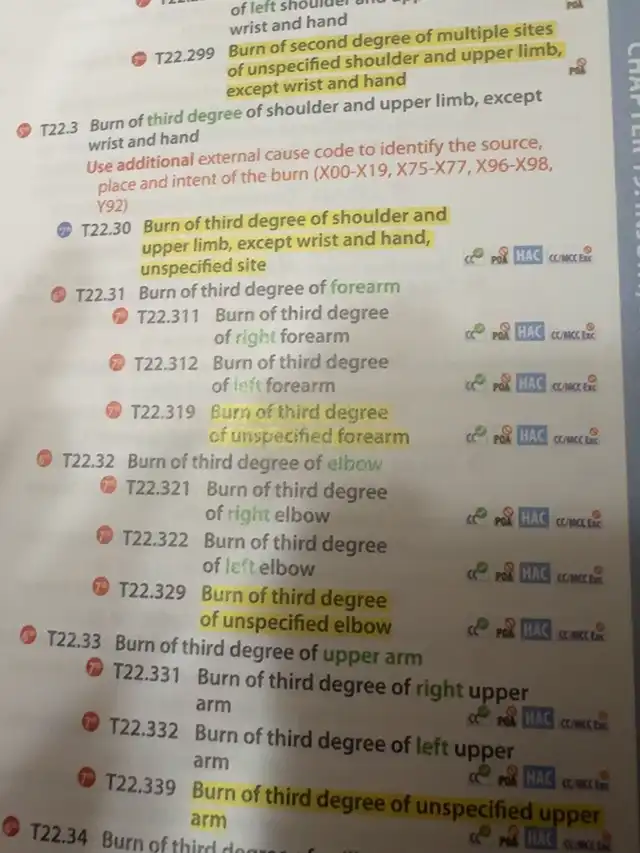 of left shoulder and
wrist and hand
POA
T22.299 Burn of second degree of multiple sites
of unspecified shoulder and upper limb,
except wrist and hand
POA
T22.3 Burn of third degree of shoulder and upper limb, except
wrist and hand
Use additional external cause code to identify the source,
place and intent of the burn (X00-X19, X75-X77, X96-X98,
Y92)
7th T22.30 Burn of third degree of shoulder and
upper limb, except wrist and hand,
unspecified site
CC POA HAC CC/MCC Exc
T22.31 Burn of third degree of forearm
7th T22.311 Burn of third degree
of right forearm CC POA HAC CC/MCC Exc
7th T22.312 Burn of third degree
of left forearm CC POA HAC CC/MCC Exc
7th T22.319 Burn of third degree
of unspecified forearm CC POA HAC CC/MCC Exc
T22.32 Burn of third degree of elbow
7th T22.321 Burn of third degree
of right elbow CC POA HAC CC/MCC Exc
7th T22.322 Burn of third degree
of left elbow CC POA HAC CC/MCC Exc
7th T22.329 Burn of third degree
of unspecified elbow CC POA HAC CC/MCC Exc
T22.33 Burn of third degree of upper arm
7th T22.331 Burn of third degree of right upper
arm CC POA HAC CC/MCC Exc
7th T22.332 Burn of third degree of left upper
arm CC POA HAC CC/MCC Exc
7th T22.339 Burn of third degree of unspecified upper
arm CC POA HAC CC/MCC Exc
T22.34 Burn of third
CHAPTER